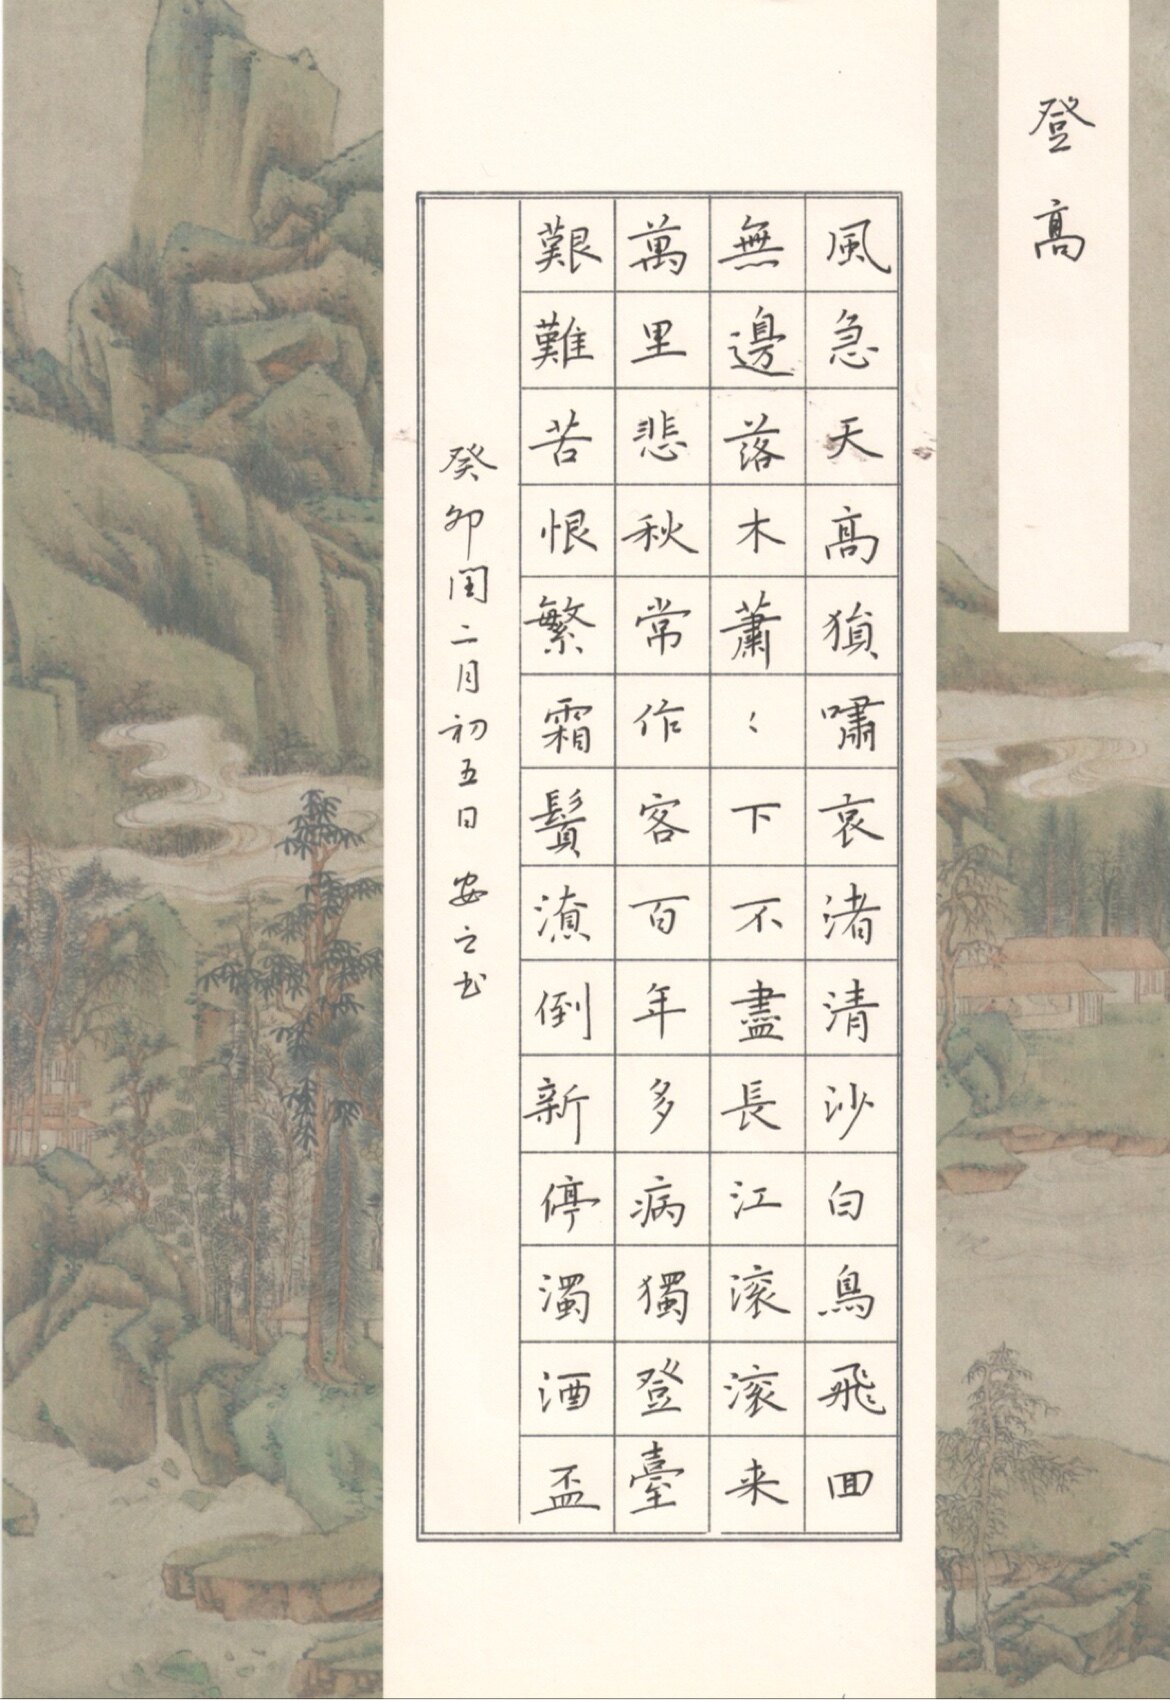 登高
風急天高猿嘯哀渚清沙白鳥飛回
無邊落木蕭〻下不盡長江滾滾来
萬里悲秋常作客百年多病獨登臺
艱難苦恨繁霜鬢潦倒新停濁酒盃
癸卯閏二月初五日 安之书